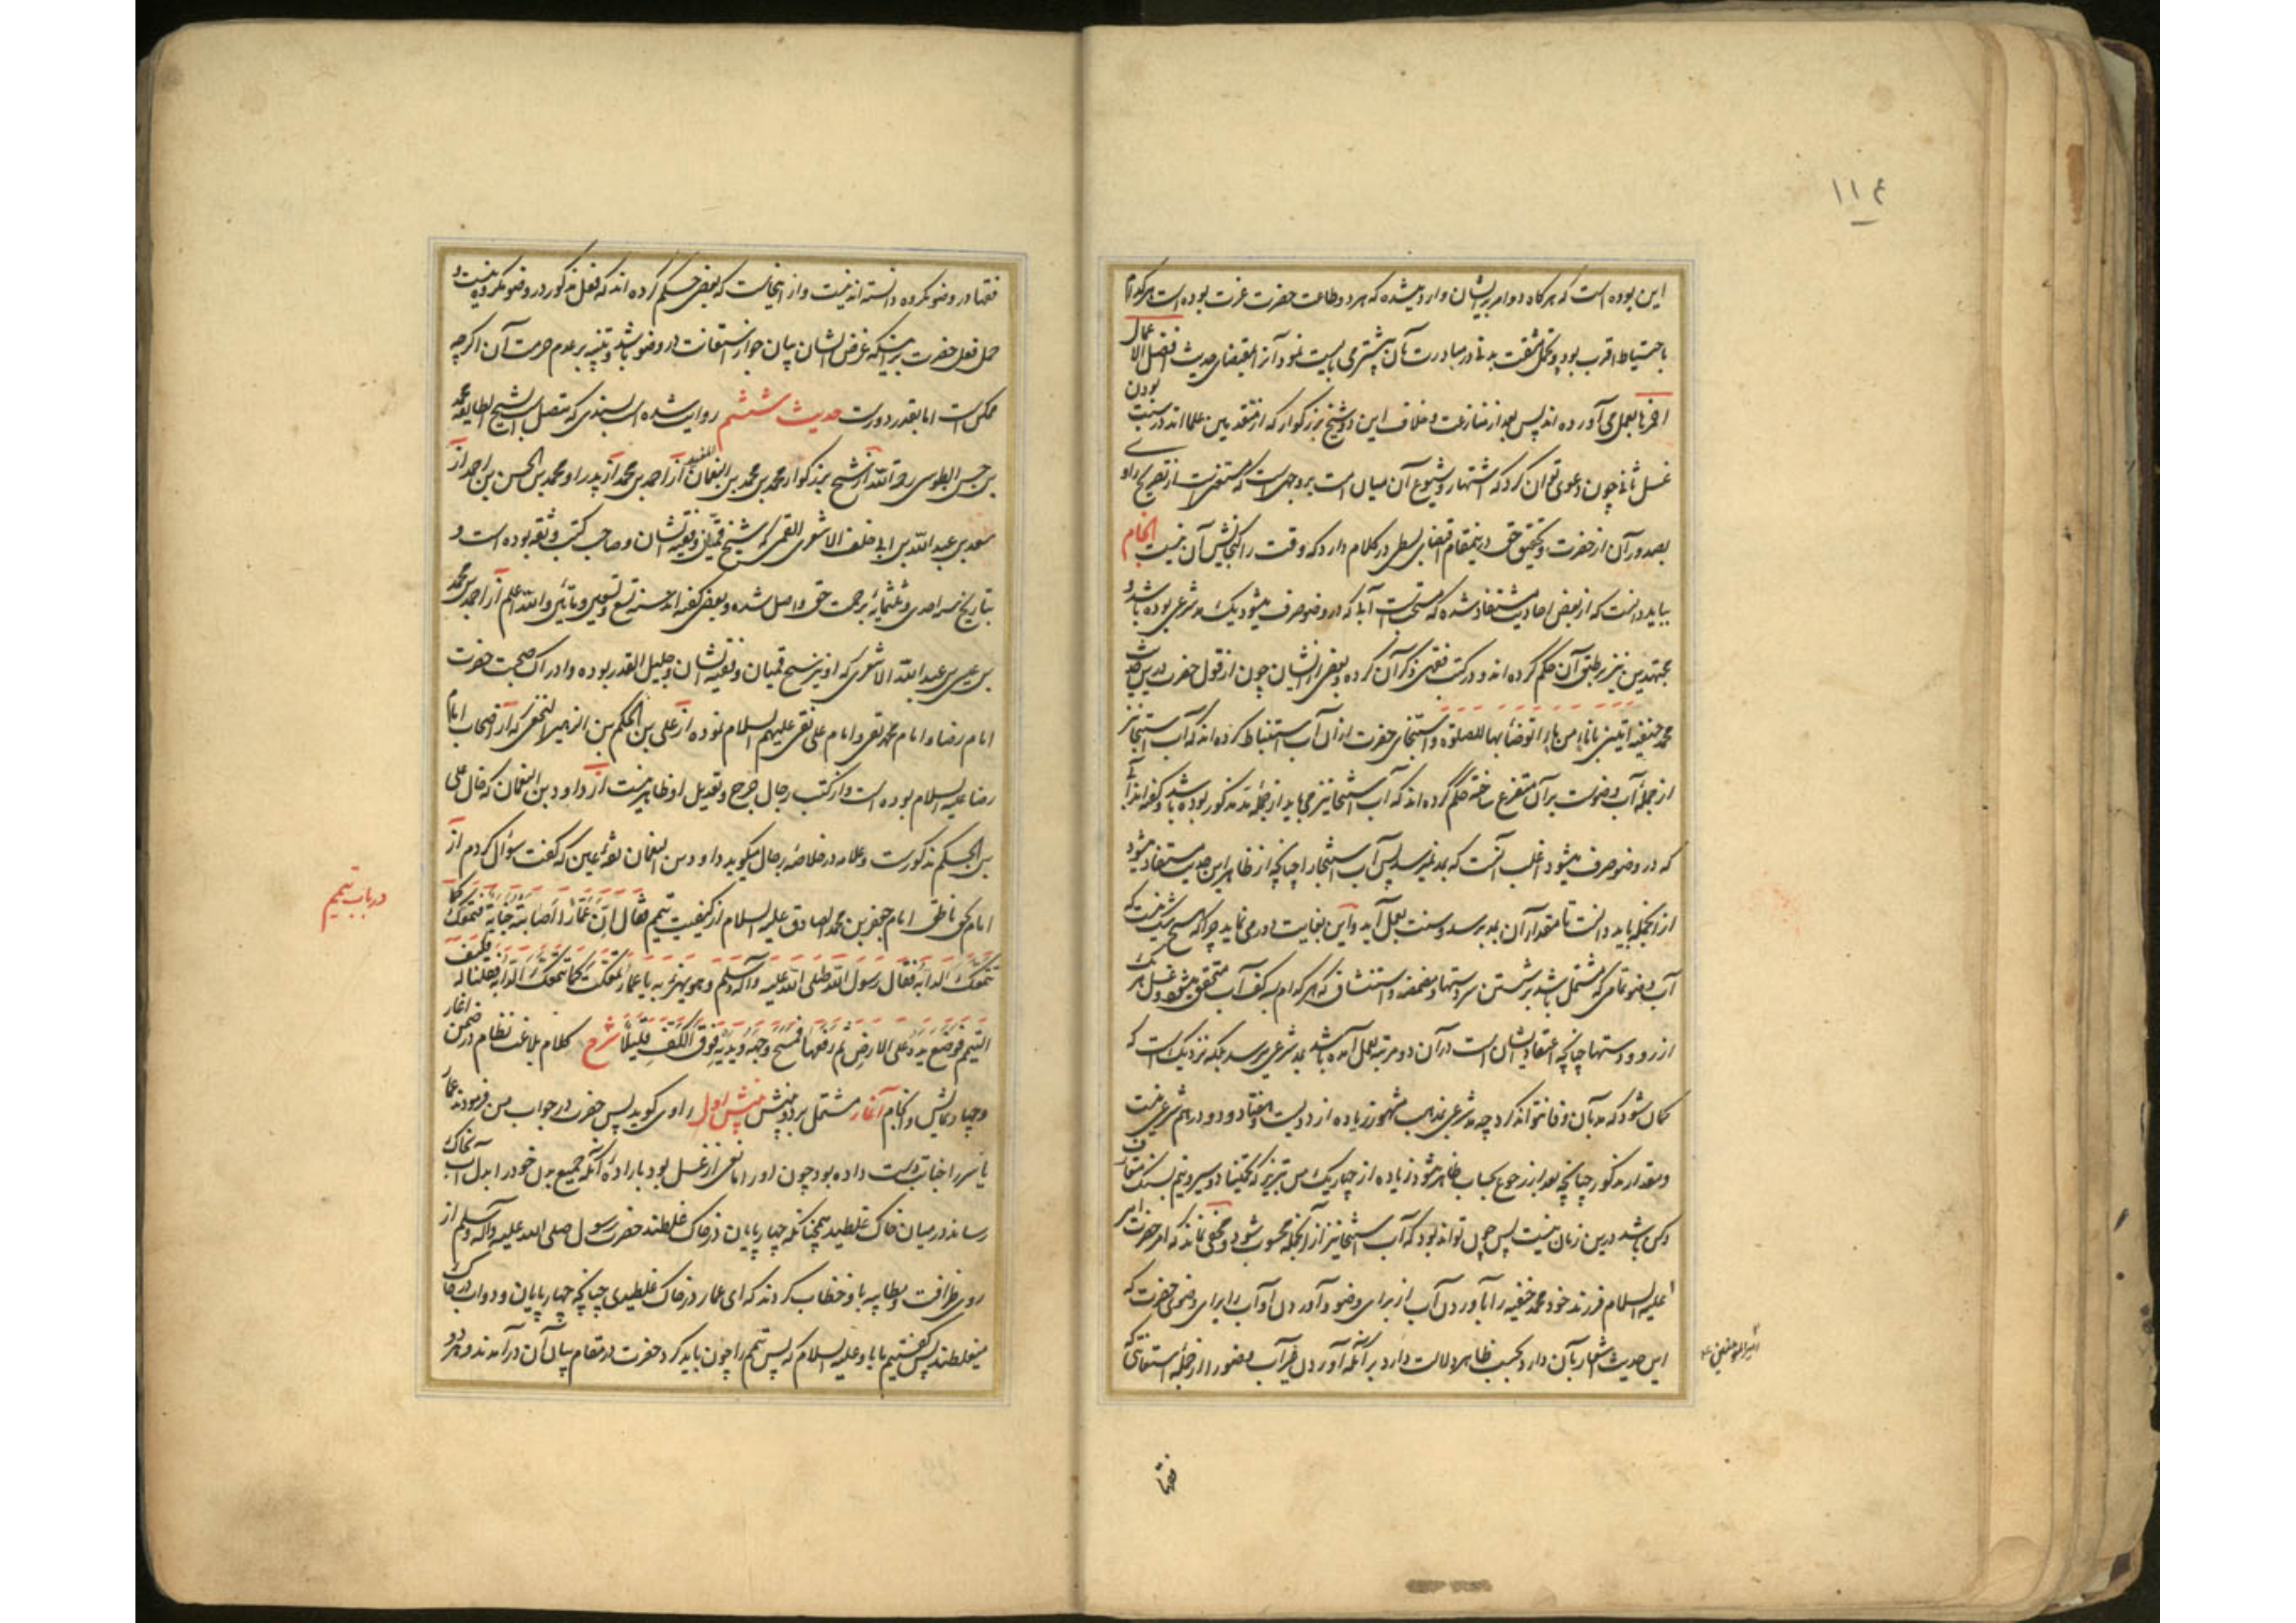 ۱۱۴
این بوده است که هر گاه دو امر بر ایشان وارد میشده که هر دو طاعت حضرت عزت بوده است هر کدام
باحتیاط اقرب بود و تحمل مشقت بدنی در مبادرت بآن بیشتر می بایست نمود آنرا بمقتضای حدیث افضل الاعمال
احمزها بعمل می آورده اند پس بعد از منازعت و خلاف این دو شیخ بزرگوار که از متقدمین علمااند در سنت بودن
غسل ثانی چون دعوی توان کرد که اشتهار و شیوع آن میان امت بر وجهی است که مستغنی است از تصریح راوی
بصدور آن از حضرت و تحقیق حق درینمقام اقتضای بسطی در کلام دارد که وقت را گنجایش آن نیست انجام
بباید دانست که از بعض احادیث مستفاد شده که مستحبست آبی که در وضو صرف میشود یک مد شرعی بوده باشد و
مجتهدین نیز بر طبق آن حکم کرده اند و در کتب فقهی ذکر آن کرده و بعضی از ایشان چون از قول حضرت درین حدیث
محمد حنفیه ایتینی باناء من ماء اتوضأ بها للصلوة و استنجای حضرت از آن آب استنباط کرده اند که آب استنجا نیز
از جمله آب وضوست بر آن متفرع ساخته حکم کرده اند که آب استنجا نیز می باید از جمله مد مذکور بوده باشد و گفته اند آبی
که در وضو صرف میشود اغلب آنست که بمد نمیرسد پس آب استنجا را چنانچه از ظاهر این حدیث مستفاد میشود
از انجمله باید دانست تا مقدار آن بمد برسد و سنت بعمل آید و این بغایت دور می نماید چرا که هیچ شک نیست که
آب وضو تمامی که مشتمل باشد بر شستن سر دستها و مضمضه و استنشاق که هر کدام به سه کف آب متحقق میشود و غسل هر یک
از رو و دستها چنانچه اعتقاد ایشان است در آن دو مرتبه بعمل آمده باشد بمد شرعی میرسد بلکه نزدیک است که
گمان شود که مد بآن وفا نتواند کرد چه مد شرعی بمذهب مشهور زیاده از دویست و هفتاد و دو درهم شرعی نیست
و مقدار مذکور چنانچه بعد از رجوع بحساب ظاهر میشود زیاده از چهار یک من تبریز که پنجاه و سیر و نیم بسنگ متعارف
و کس باشد درین زمان نیست پس چون تواند بود که آب استنجا نیز از آنجمله محسوب شود و مخفی نماند که امر حضرت امیر
علیه السلام فرزند خود محمد حنفیه را بآوردن آب از برای وضو و آوردن او آب را برای وضوی حضرت که
این حدیث اشعار بآن دارد بحسب ظاهر دلالت دارد بر آنکه آوردن غیر آب وضو را از جمله استعانتی که
امیر المومنین ع
فقها
فقها در وضو مکروه دانسته اند نیست و از اینجاست که بعضی حکم کرده اند که فعل مذکور در وضو مکروه نیست و
حمل فعل حضرت بر اینکه غرض ایشان بیان جواز استعانت در وضو باشد و تنبیه بر عدم حرمت آن اگر چه
ممکن است اما بقدر دورست حدیث ششم روایت شده است بسندی که متصل است بالشیخ الطایفه محمد
بن حسن الطوسی ره از شیخ بزرگوار محمد بن محمد بن النعمان المفید از احمد بن محمد از پدر او محمد بن الحسن بن احمد از
سعد بن عبد الله بن ابی خلف الاشعری القمی که شیخ قمیان و فقیه ایشان و صاحب کتب و ثقه بوده است و
بتاریخ سنه احدی و ثلثمائه برحمت حق واصل شده و بعض گفته اند سنه تسع و تسعین و مائتین و الله اعلم از احمد بن محمد
بن عیسی بن عبد الله الاشعری که او نیز شیخ قمیان و فقیه ایشان و جلیل القدر بوده و ادراک صحبت حضرت
امام رضا و امام محمد تقی و امام علی نقی علیهم السلام نموده از علی بن الحکم بن الزبیر النخعی که از اصحاب امام
رضا علیه السلام بوده است و از کتب رجال جرح و تعدیل او ظاهر نیست از داود بن النعمان که خال علی
بن الحکم مذکورست و علامه در خلاصه رجال میگوید داود بن النعمان ثقه عین که گفت سؤال کردم از
امام بحق ناطق امام جعفر بن محمد الصادق علیه السلام از کیفیت تیمم فقال ان عمارا اصابته جنابة فتمعک کما
تتمعک الدابه فقال رسول الله صلی الله علیه و آله و سلم و هو یهزء به یا عمار تمعکت کما تتمعک الدابه فقلنا له فکیف
التیمم فوضع یدیه علی الارض ثم رفعها فمسح وجهه و یدیه فوق الکف قلیلا شرح کلام بلاغت نظام در ضمن آغاز
و چهار نمایش و انجام آغاز مشتمل بر دو منش منش اول راوی گوید پس حضرت در جواب من فرمودند عمار
یاسر را جنابت دست داده بود چون او را مانعی از غسل بود باراده آنکه جمیع بدن خود را بدل آب بخاک
رساند در میان خاک غلطید همچنانکه چهارپایان در خاک غلطند حضرت رسول صلی الله علیه و آله و سلم از
روی ظرافت و مطایبه باو خطاب کردند که ای عمار در خاک غلطیدی چنانچه چهارپایان و دواب در خاک
میغلطند پس گفتیم ما با او علیه السلام که پس تیمم را چون باید کرد حضرت در مقام بیان آن درآمدند و هر دو
در باب تیمم